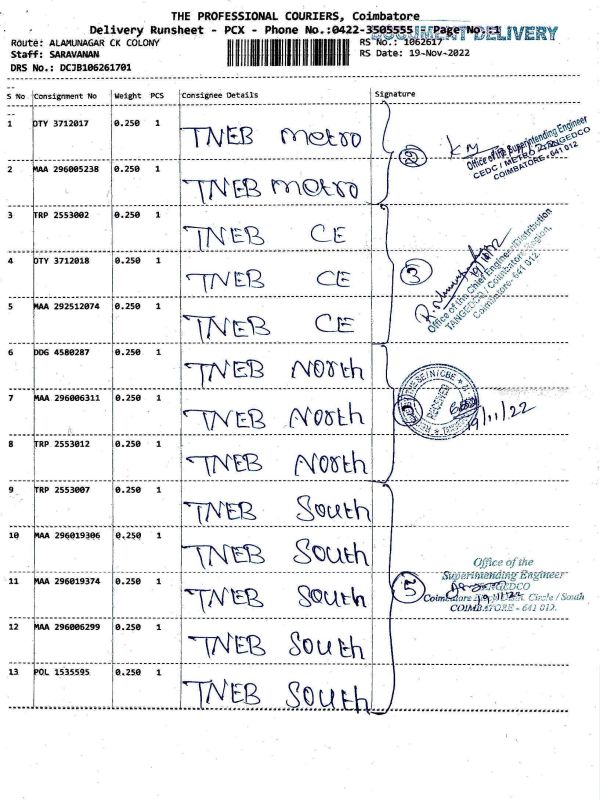 THE PROFESSIONAL COURIERS, Coimbatore
Delivery Runsheet - PCX - Phone No.:0422-3505555 Page No.:1
DOCUMENT DELIVERY
Route: ALAMUNAGAR CK COLONY
RS No.: 1062617
Staff: SARAVANAN
RS Date: 19-Nov-2022
DRS No.: DCJB106261701
S No Consignment No Weight PCS Consignee Details Signature
1 DTY 3712017 0.250 1 TNEB metro
2 MAA 296005238 0.250 1 TNEB metro
2
Office of the Superintending Engineer
CEDC / METRO / TANGEDCO
COIMBATORE - 641 012
3 TRP 2553002 0.250 1 TNEB CE
4 DTY 3712018 0.250 1 TNEB CE
5 MAA 292512074 0.250 1 TNEB CE
3
Office of the Chief Engineer/Distribution
TANGEDCO / Coimbatore Region,
Coimbatore - 641 012.
6 DDG 4580287 0.250 1 TNEB North
7 MAA 296006311 0.250 1 TNEB North
8 TRP 2553012 0.250 1 TNEB North
RECEIVED
19/11/22
9 TRP 2553007 0.250 1 TNEB South
10 MAA 296019306 0.250 1 TNEB South
11 MAA 296019374 0.250 1 TNEB South
12 MAA 296006299 0.250 1 TNEB South
13 POL 1535595 0.250 1 TNEB South
5
Office of the
Superintending Engineer
TANGEDCO
Circle / South
COIMBATORE - 641 012.